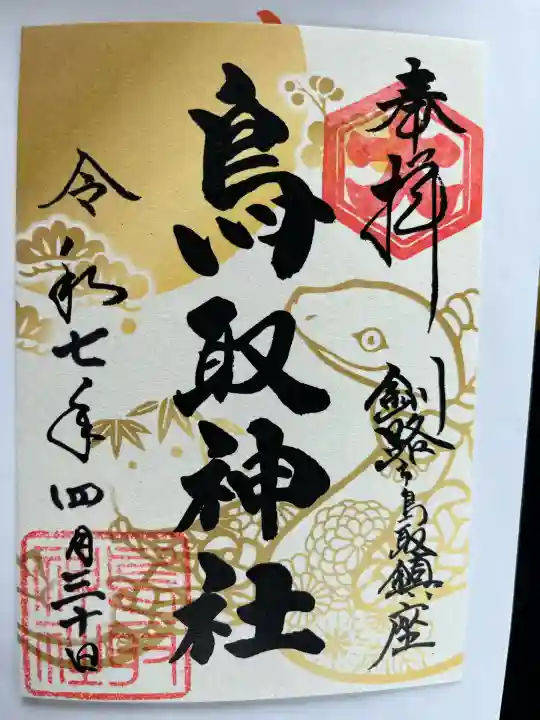 奉拝
釧路市鳥取鎮座
鳥取神社
令和七年四月三十日